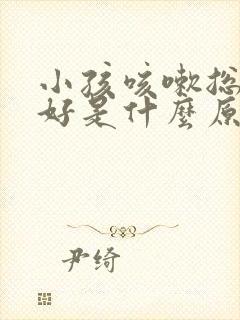 小孩咳嗽总
好是什麼原
尹绮